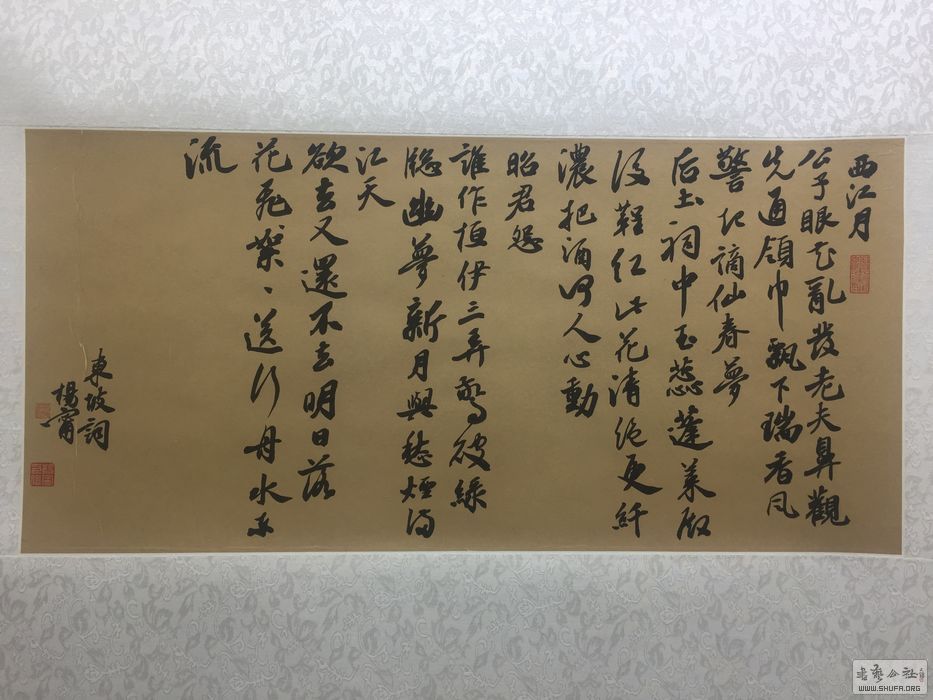 西江月
公子眼花亂發老夫鼻觀
先通領巾飄下瑞香風
驚起謫仙春夢
后土祠中玉蕊蓬萊殿
後鞓紅此花清絕更纖
濃把酒何人心動
昭君怨
誰作桓伊三弄驚破綠
牕幽夢新月與愁煙滿
江天
欲去又還不去明日落
花飛絮飛絮送行舟水東
流
東坡詞
楊甯
書藝公社
WWW.SHUFA.ORG